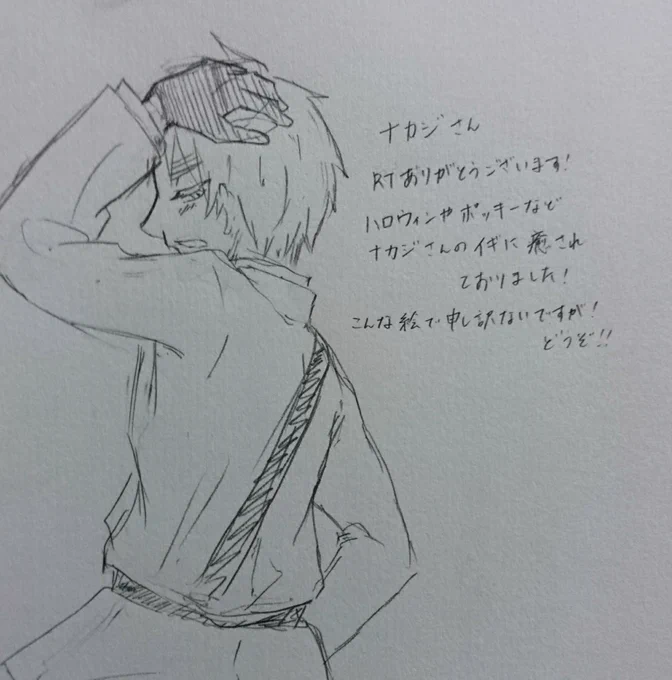 ナカジさん
RTありがとうございます!
ハロウィンやポッキーなど
ナカジさんのイギに癒され
ておりました!
こんな絵で申し訳ないですが!
どうぞ!!